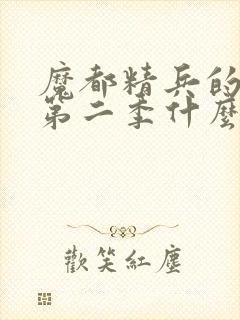 魔都精兵的
第二季什麼
歡笑紅塵